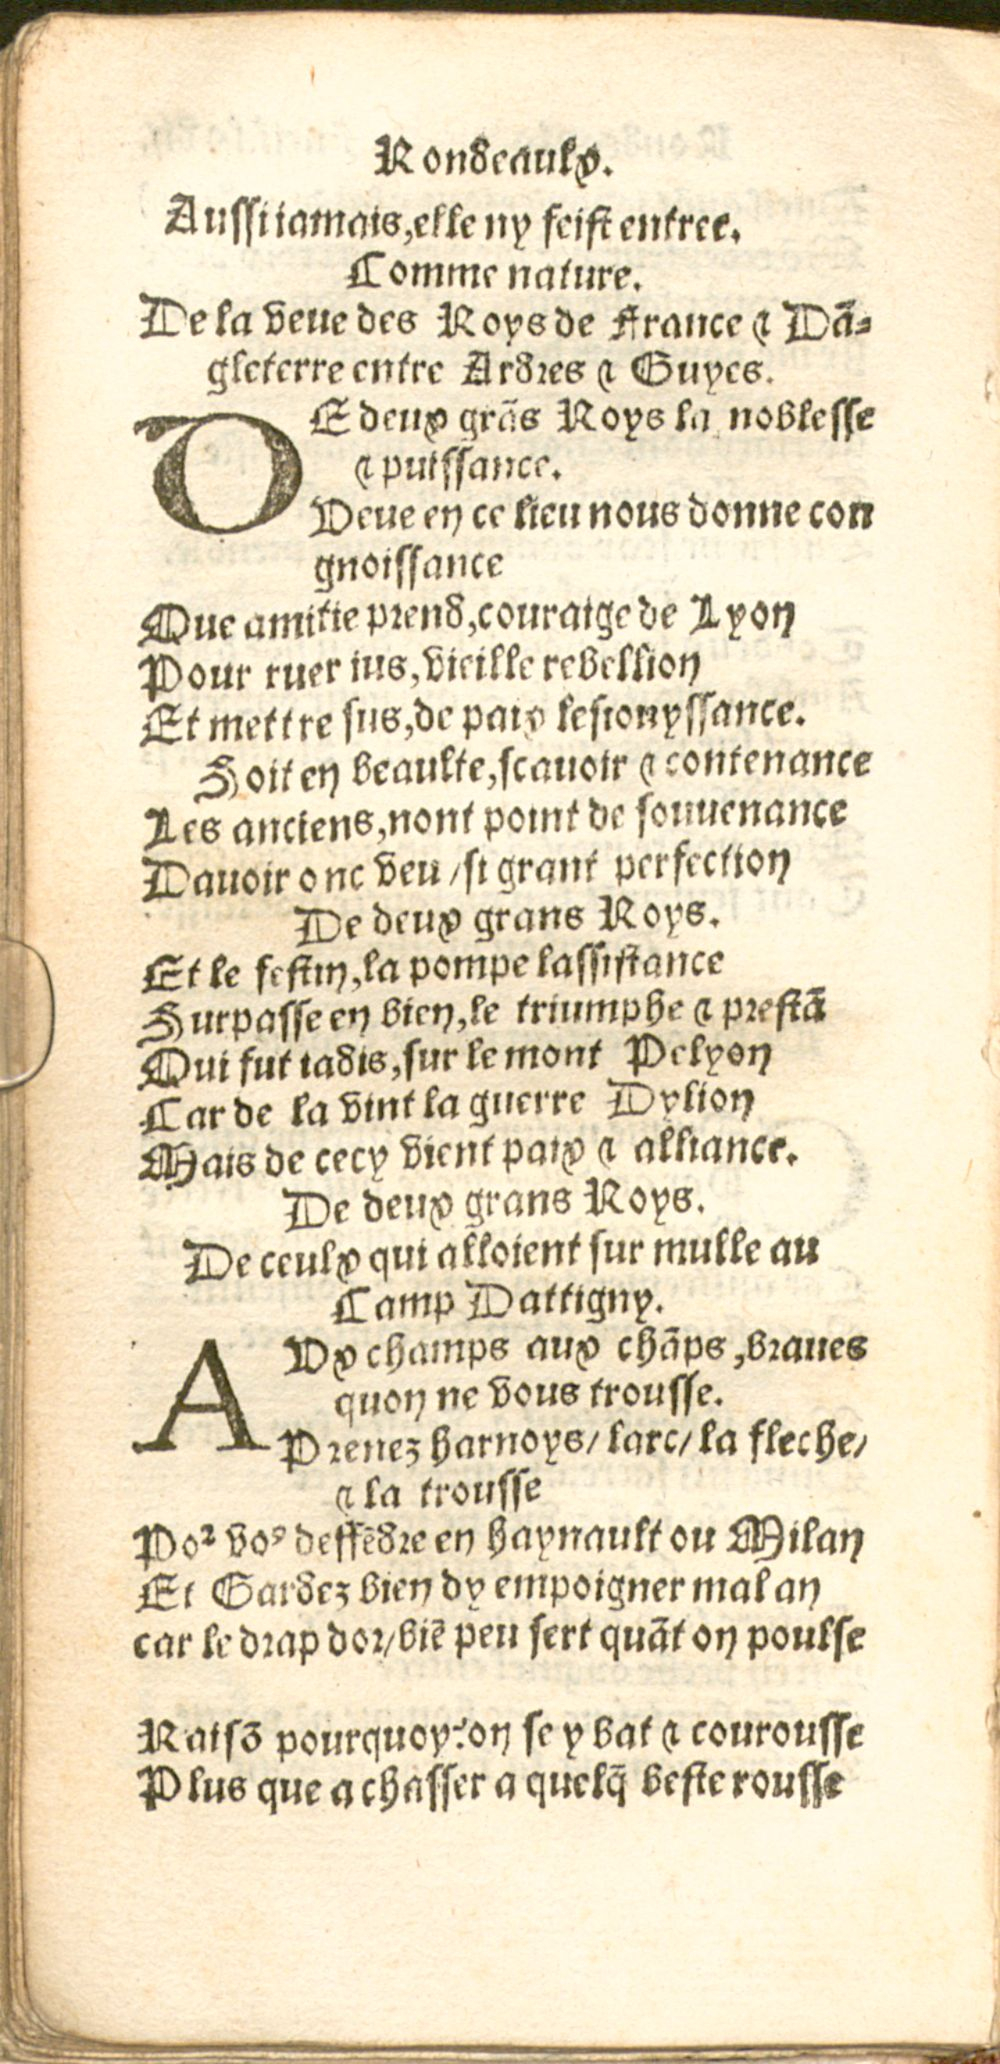 Rondeaulx.
Aussi iamais, elle ny feist entree.
Comme nature.
De la veue des Roys de France & Dã-
gleterre entre Ardres & Guyes.
DE deux grãs Roys la noblesse
& puissance.
Veue en ce lieu nous donne con
gnoissance
Que amitie prend, couraige de Lyon
Pour ruer ius, vieille rebellion
Et mettre sus, de paix lesiouyssance.
Soit en beaulte, scauoir & contenance
Les anciens, nont point de souuenance
Dauoir onc veu / si grant perfection
De deux grans Roys.
Et le festin, la pompe lassistance
Surpasse en bien, le triumphe & prestã
Qui fut iadis, sur le mont Pelyon
Car de la vint la guerre Dylion
Mais de cecy vient paix & alliance.
De deux grans Roys.
De ceulx qui alloient sur mulle au
Camp Dattigny.
AVx champs aux chãps, braues
quon ne vous trousse.
Prenez harnoys / larc / la fleche /
& la trousse
Poꝛ voꝰ deffẽdre en haynault ou Milan
Et Gardez bien dy empoigner mal an
car le drap dor / biẽ peu sert quãt on poulse

Raisõ pourquoy: on se y bat & courousse
Plus que a chasser a quelq̃ beste rousse